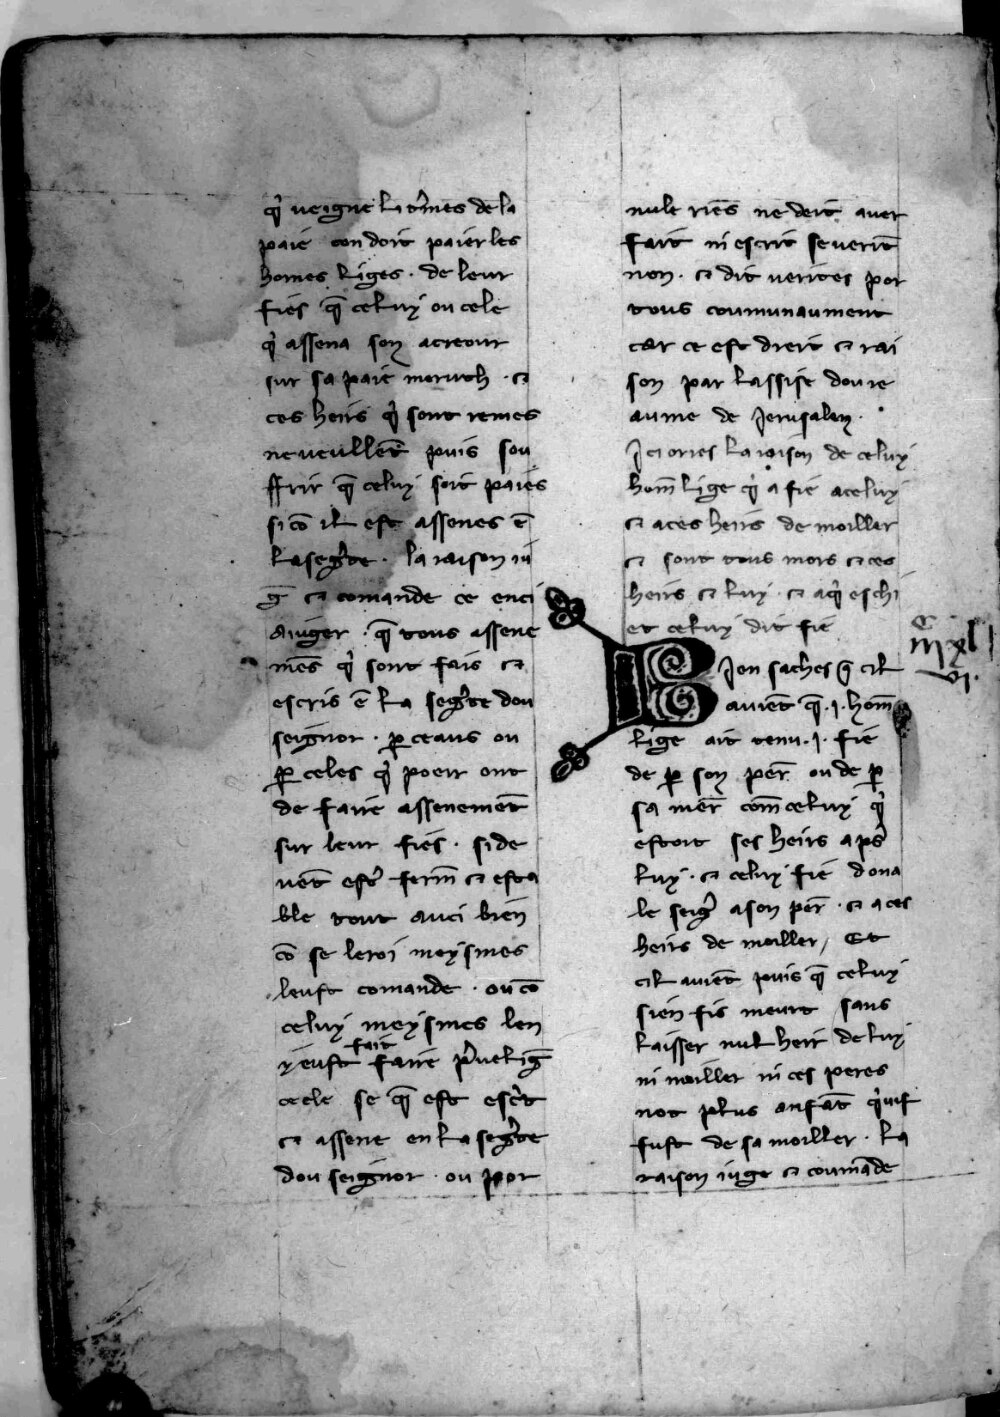 q̉ ueigne la t̉mes de la
paie con doit paier les
homes liges · de leur
fies q̄ celuy ou cele
q̉ assena son acreour
sur sa paie moruth · ⁊
ces heirs q̉ sont remes
ne ueullēt puis sou
ffrir q̄ celuy soit paies
si cō il est assenes ē
la seg̉te · la raison iu
ḡ ⁊ comande ce enci
a iuger · q̄ tous assene
mēs q̉ sont fais ⁊
escris ē la seg̉te dou
seignor · ꝑ ceaus ou
ꝑ celes q̉ poeir ont
de faire assenemēt
sur leur fies · si de
uēt est̉ ferm̄ ⁊ esta
ble tout auci bien
cō se le roi meysmes
leust comande · ou cō
celuy meysmes len
fait
y eust faire p̉ueliḡ
cele se q̄ est esc̉t
⁊ assene en la seg̉te
dou seignor · ou por
nule riēs ne deit auer
fait ni escrit se uerite
non · ⁊ dit uerites por
tous coumunaument
car ce est dreit ⁊ rai
son par lassise dou re
aume de Jerusalem ·
Ici ores la raison de celuy
hom̄ lige q̉ a fie a celuy
⁊ a ces heirs de moiller
⁊ sont tous mors ⁊ ces
heirs ⁊ luy · ⁊ a q̉ eschi
et celuy dit fie
Bien saches q̄ cil
auiēt q̄ · i · hom̄
lige ait tenu · i · fie
de ꝑ son per̄ ou de ꝑ
sa mer̄ com̄ celuy q̉
estoit ses heirs aps̉
luy · ⁊ celuy fie dona
le seig̉ a son per̄ · ⁊ a ces
heirs de moiller / Et
cil auiēt puis q̄ celuy
sien fis meurt sans
laisser nul heir de luy
ni moiller ni ces peres
not plus anfāt q̉ uif
fust de sa moiller · la
raison iuge ⁊ coumāde